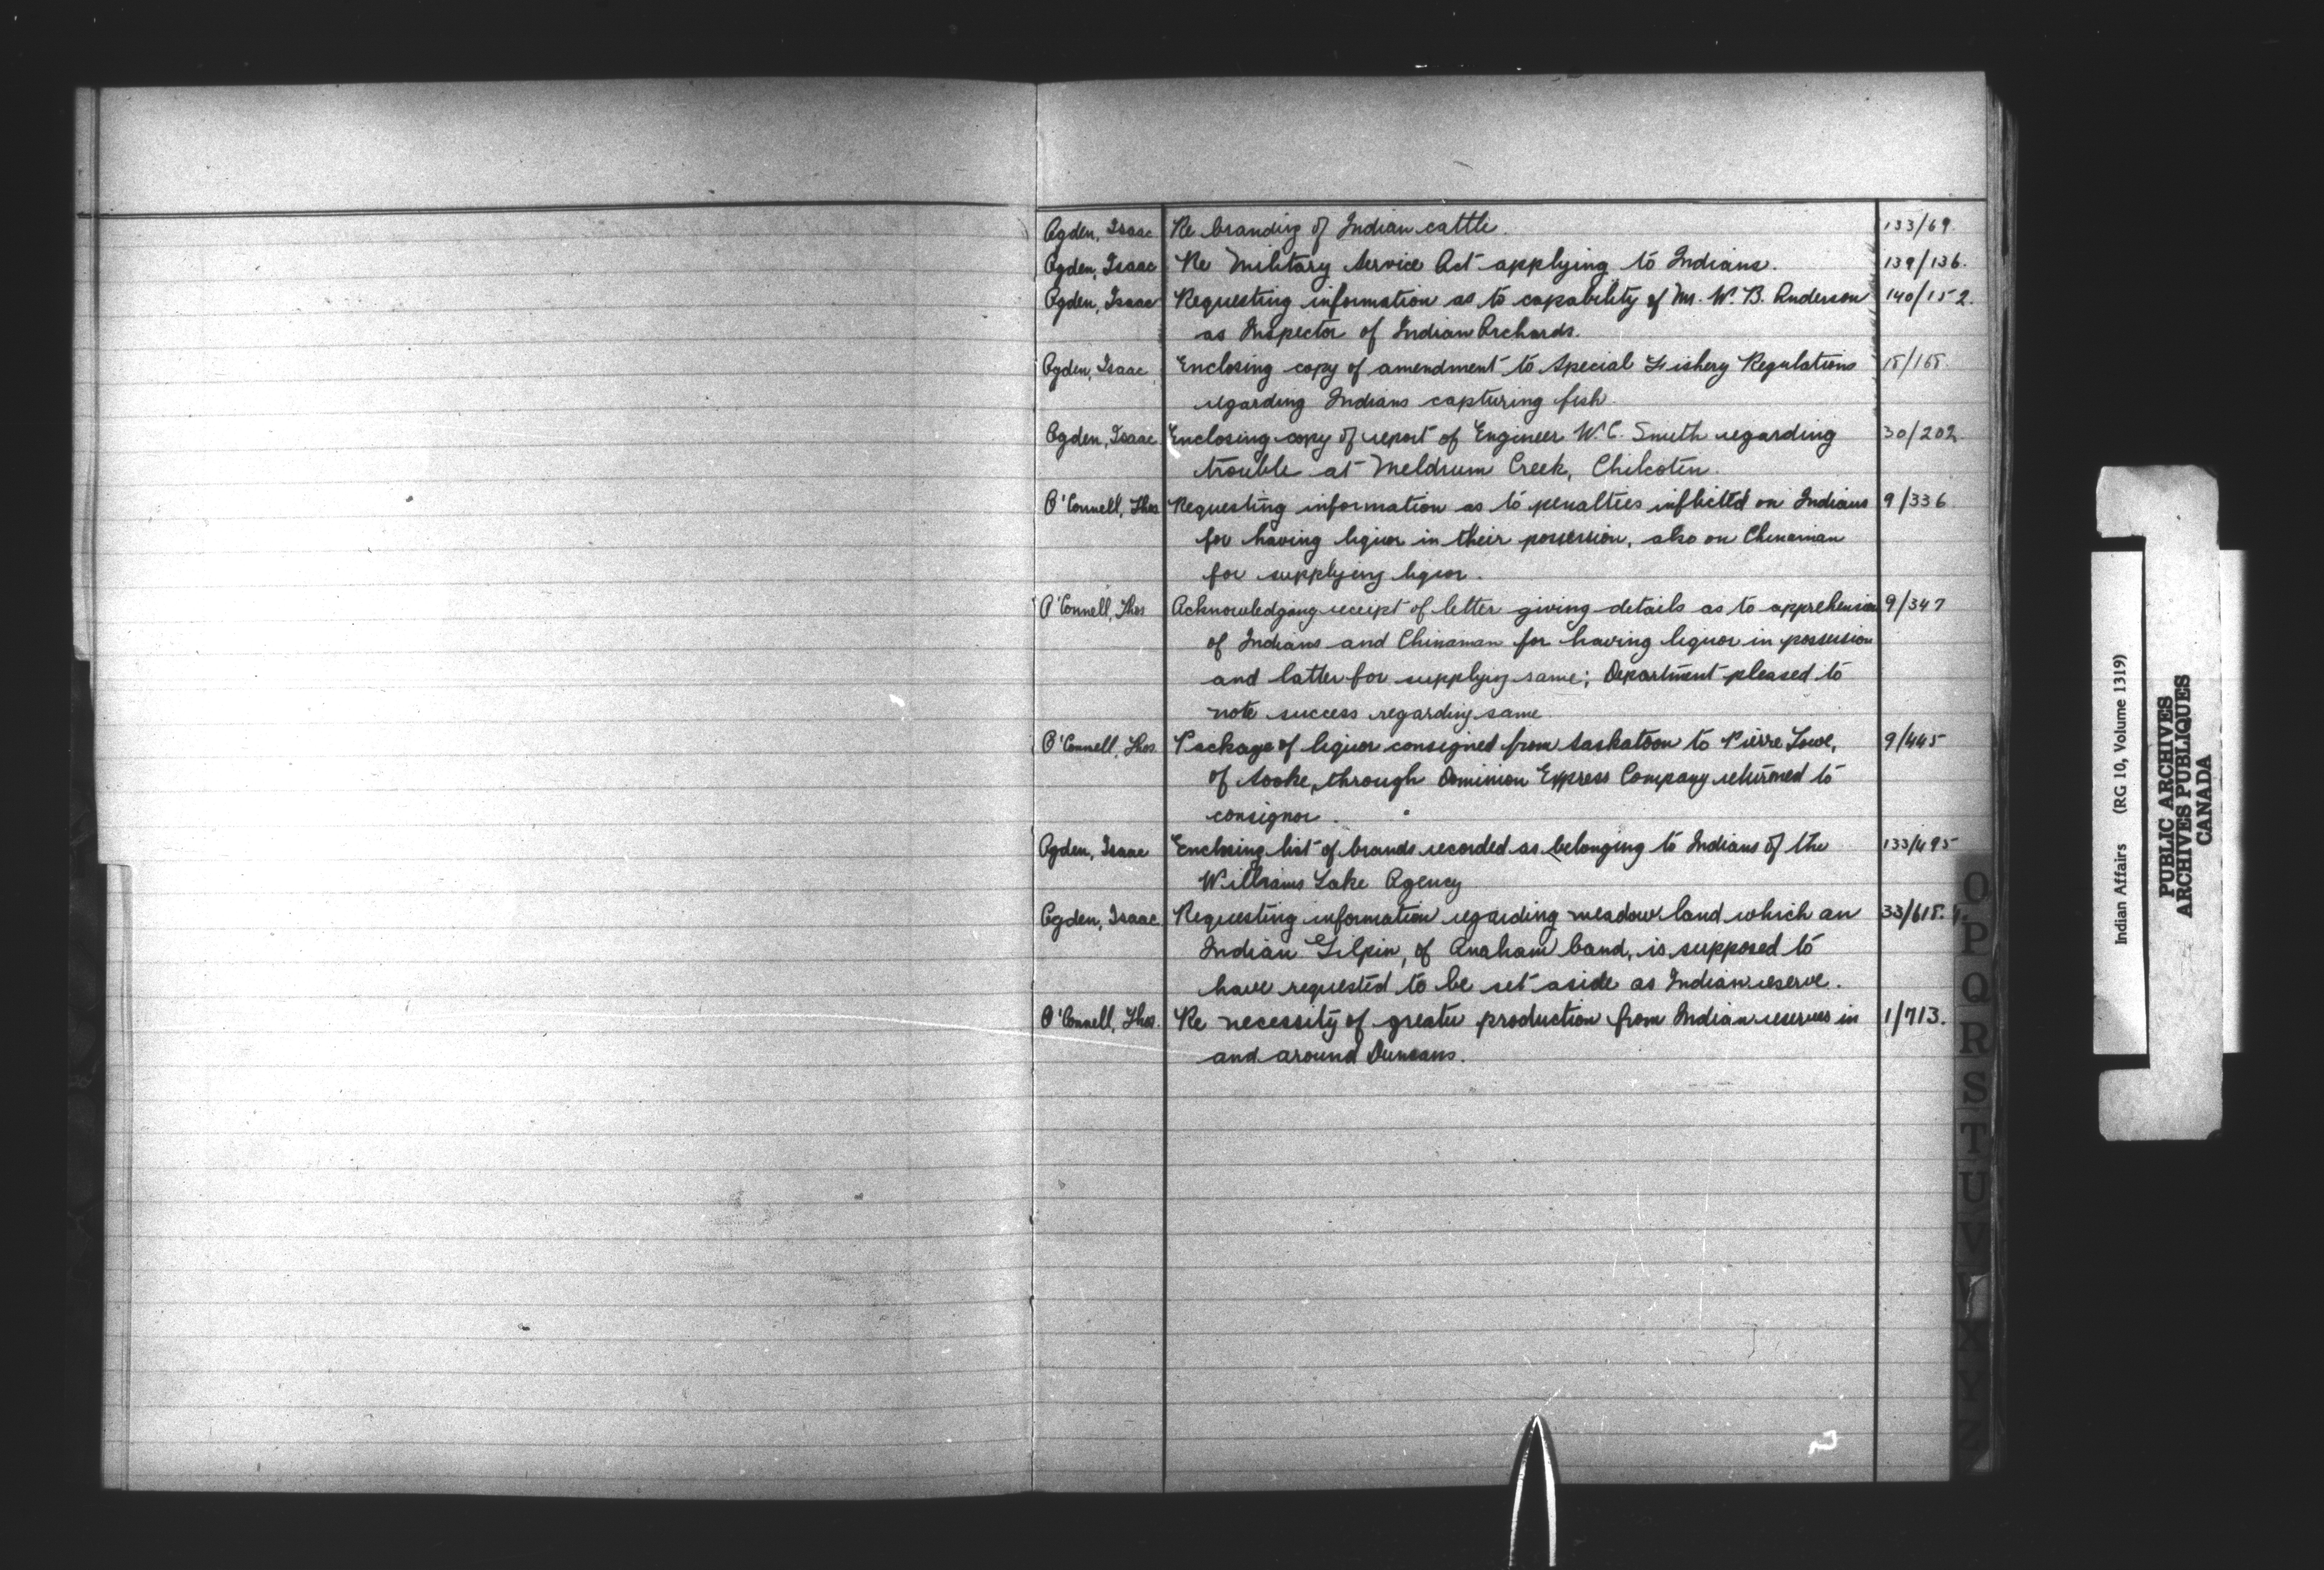 Ogden, Isaac Re branding of Indian cattle. 133/69.
Ogden, Isaac Re Military Service Act applying to Indians. 139/136.
Ogden, Isaac Requesting information as to capability of Mr. W. B. Anderson 140/152.
as Inspector of Indian Orchards.
Ogden, Isaac Enclosing copy of amendment to Special Fishery Regulations
regarding Indians capturing fish.
Ogden, Isaac Enclosing copy of report of Engineer W. C. Smith regarding 30/202
trouble at Meldrum Creek, Chilcotin.
O'Connell, Thos Requesting information as to penalties inflicted on Indians 9/336
for having liquor in their possession, also on Chinaman
for supplying liquor.
O'Connell, Thos Acknowledging receipt of letter giving details as to apprehension 9/347
of Indians and Chinaman for having liquor in possession
and latter for supplying same; Department pleased to
note success regarding same
O'Connell, Thos. Package of liquor consigned from Saskatoon to Pierre Lowe, 9/445
of Sooke, through Dominion Express Company returned to
consignor.
Ogden, Isaac Enclosing list of brands recorded as belonging to Indians of the 133/495
Williams Lake Agency
Ogden, Isaac Requesting information regarding meadow land which an
Indian Gilpin, of Anaham band, is supposed to
have requested to be set aside as Indian reserve.
O'Connell, Thos. Re necessity of greater production from Indian reserves in 1/713.
and around Duncans.
O
P
Q
R
S
T
U
V
X
Y
Z
Indian Affairs (RG 10, Volume 1319)
PUBLIC ARCHIVES
ARCHIVES PUBLIQUES
CANADA